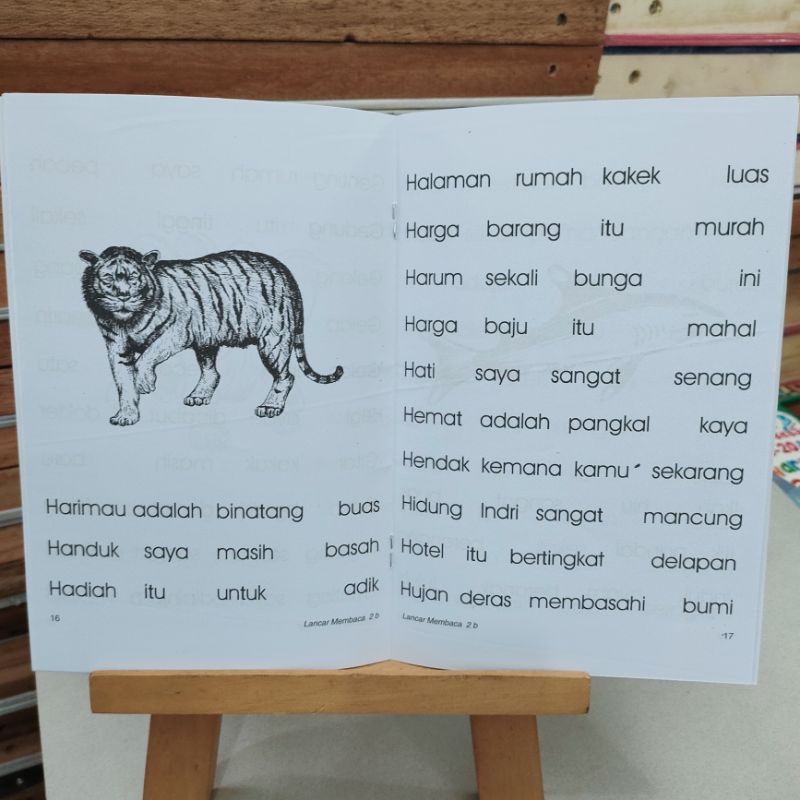 Harimau adalah binatang buas
Handuk saya masih basah
Hadiah itu untuk adik
16
Lancar Membaca 2 b
Halaman rumah kakek luas
Harga barang itu murah
Harum sekali bunga ini
Harga baju itu mahal
Hati saya sangat senang
Hemat adalah pangkal kaya
Hendak kemana kamu sekarang
Hidung Indri sangat mancung
Hotel itu bertingkat delapan
Hujan deras membasahi bumi
Lancar Membaca 2 b
17